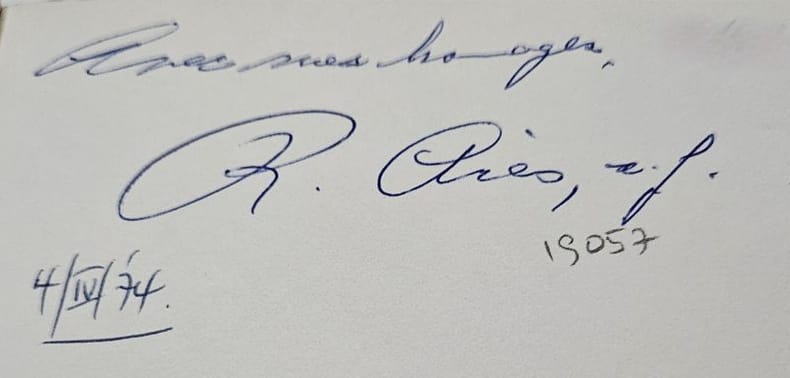 Avec mes homages,
R. Ariès, s.j.
19057
4/IV/'74.